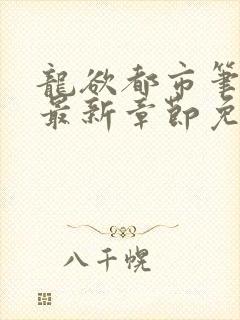 龍欲都市筆
最新章節免
八千幌